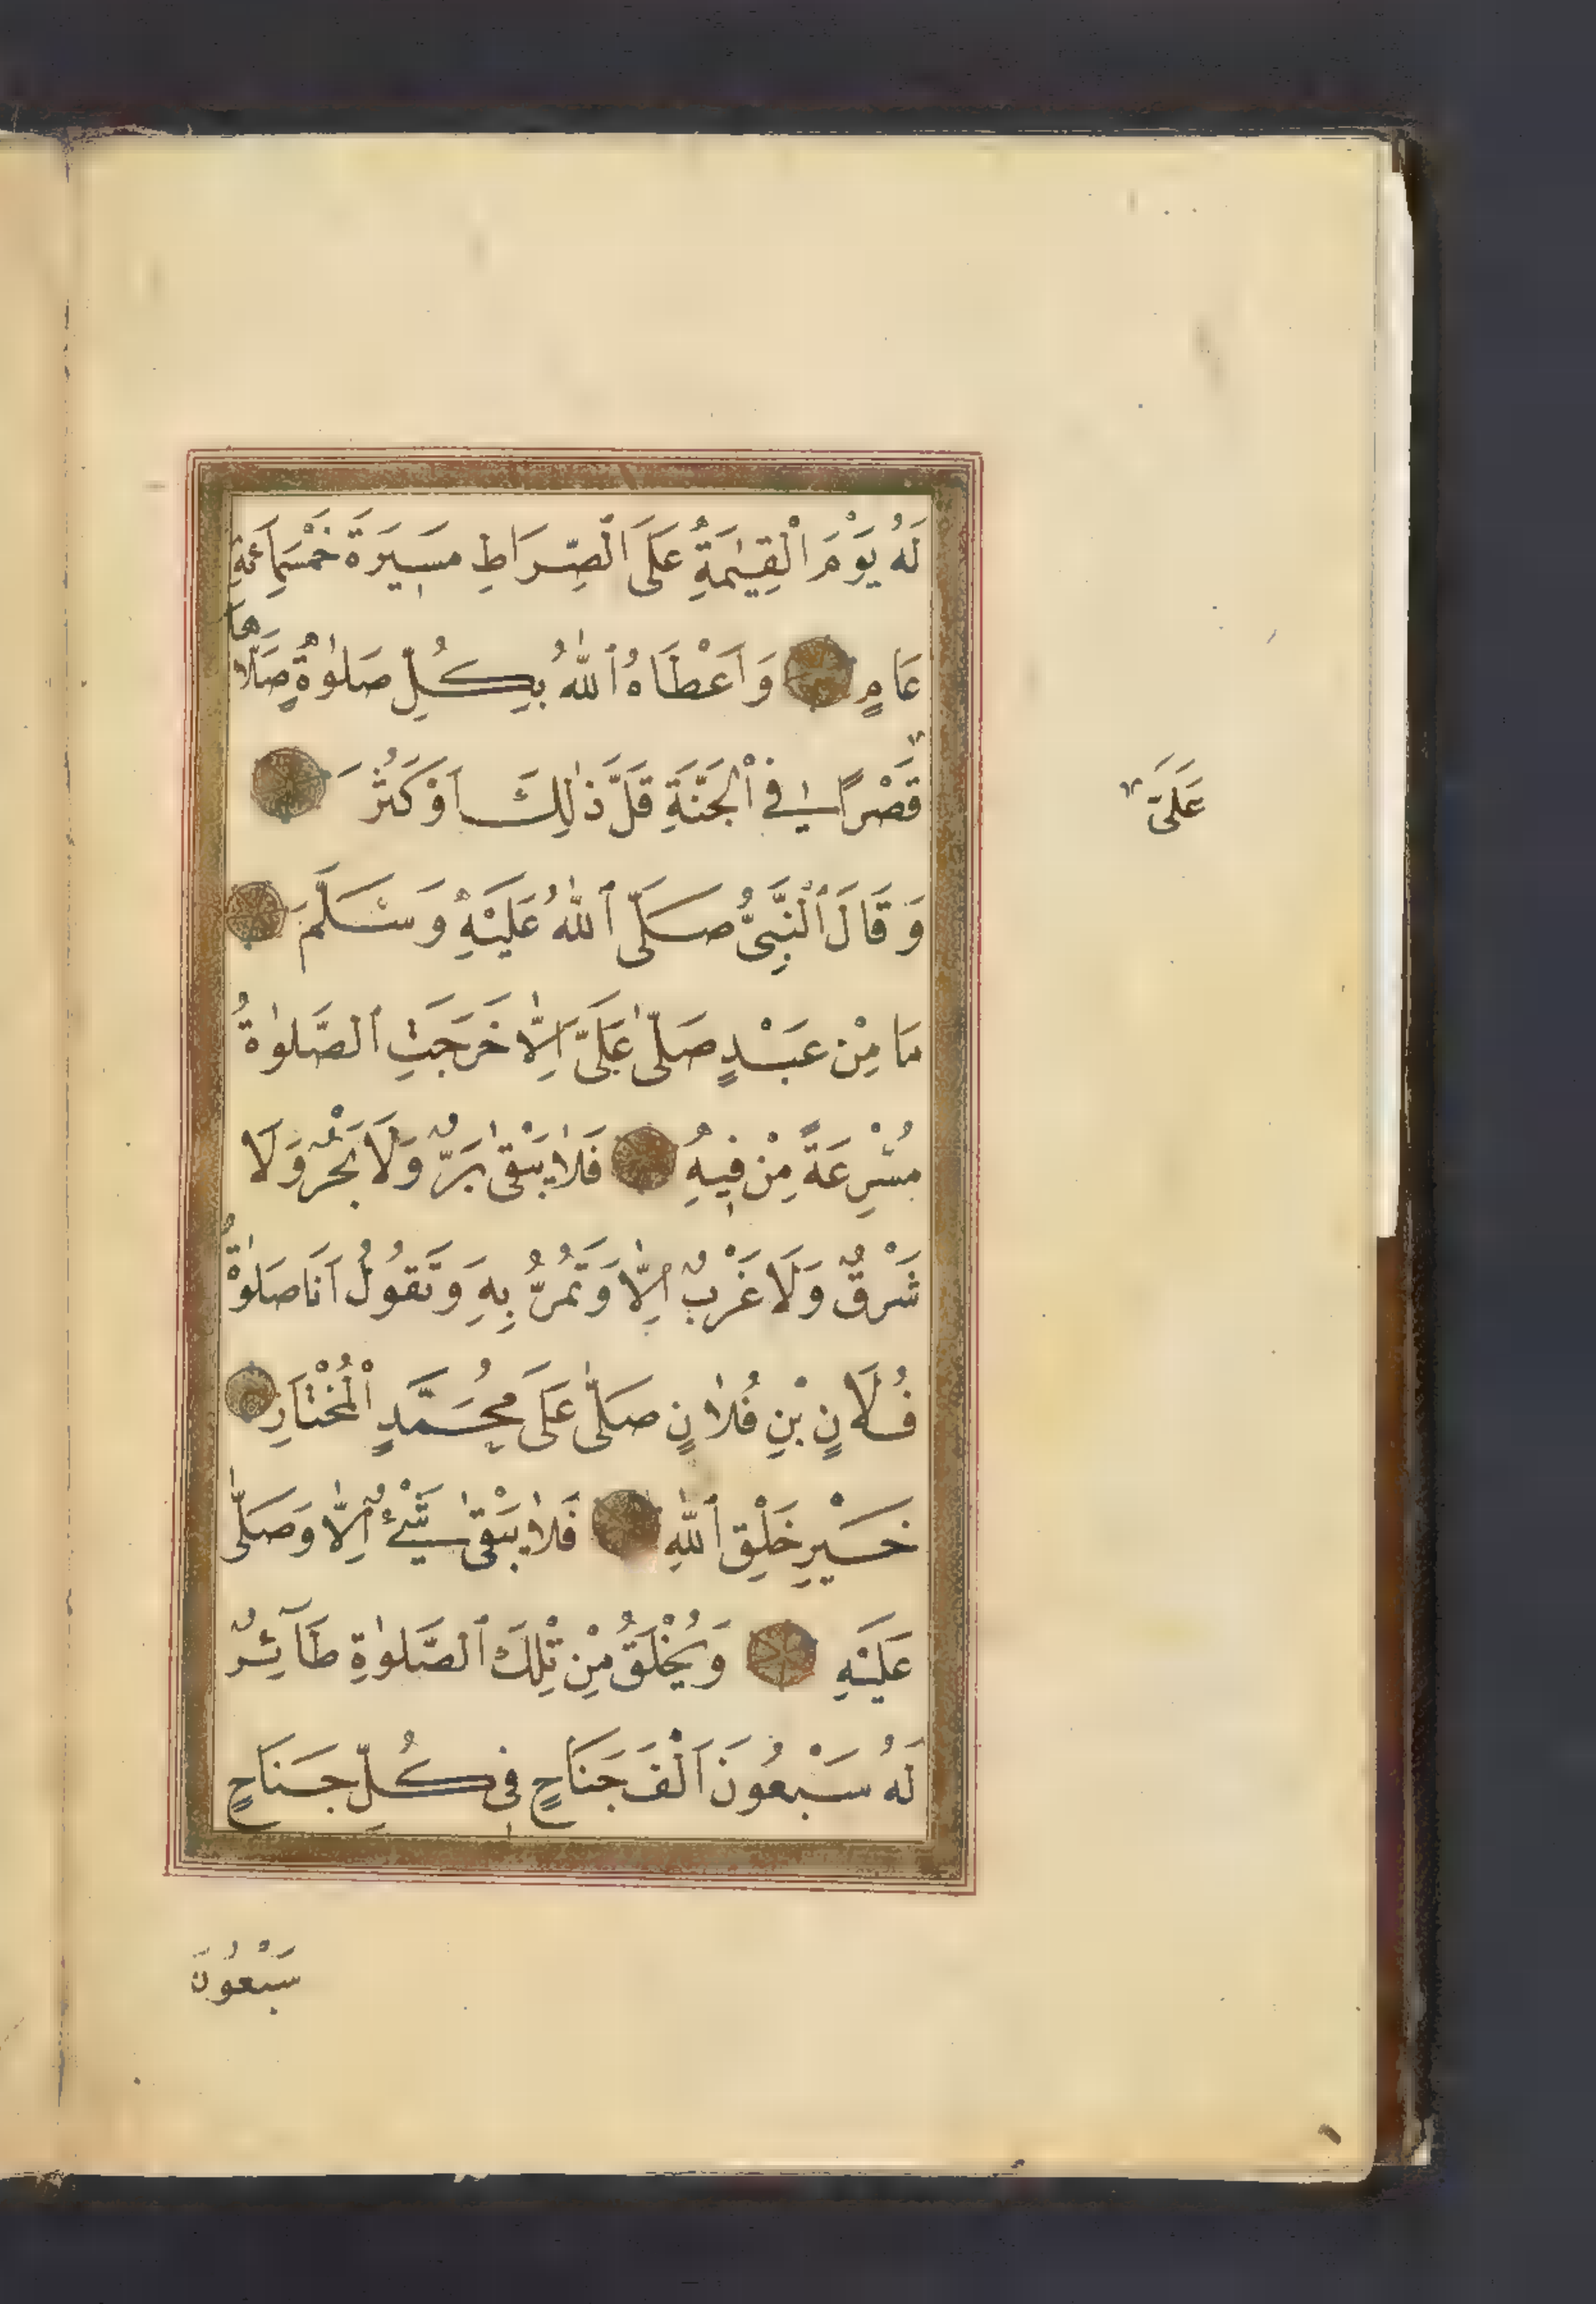 لَهُ يَوْمَ الْقِيٰمَةِ عَلَى الصِّرَاطِ مَسِيرَةَ خَمْسِمِائَةِ
عَامٍ وَاَعْطَاهُ اللّٰهُ بِكُلِّ صَلٰوةٍ صَلَّاهَا
قَصْرًا فِي الْجَنَّةِ قَلَّ ذٰلِكَ اَوْ كَثُرَ
عَلَىَّ
وَقَالَ النَّبِىُّ صَلَّى اللّٰهُ عَلَيْهِ وَسَلَّمَ
مَا مِنْ عَبْدٍ صَلّٰى عَلَىَّ اِلَّا خَرَجَتِ الصَّلٰوةُ
مُسْرِعَةً مِنْ فِيهِ فَلَا يَبْقٰى بَرٌّ وَلَا بَحْرٌ وَلَا
شَرْقٌ وَلَا غَرْبٌ اِلَّا وَتَمُرُّ بِهِ وَتَقُولُ اَنَا صَلٰوةُ
فُلَانِ بْنِ فُلَانٍ صَلّٰى عَلَى مُحَمَّدٍ الْمُخْتَارِ
خَيْرِ خَلْقِ اللّٰهِ فَلَا يَبْقٰى شَيْءٌ اِلَّا وَصَلّٰى
عَلَيْهِ وَيُخْلَقُ مِنْ تِلْكَ الصَّلٰوةِ طَآئِرٌ
لَهُ سَبْعُونَ اَلْفَ جَنَاحٍ فِى كُلِّ جَنَاحٍ
سَبْعُونَ